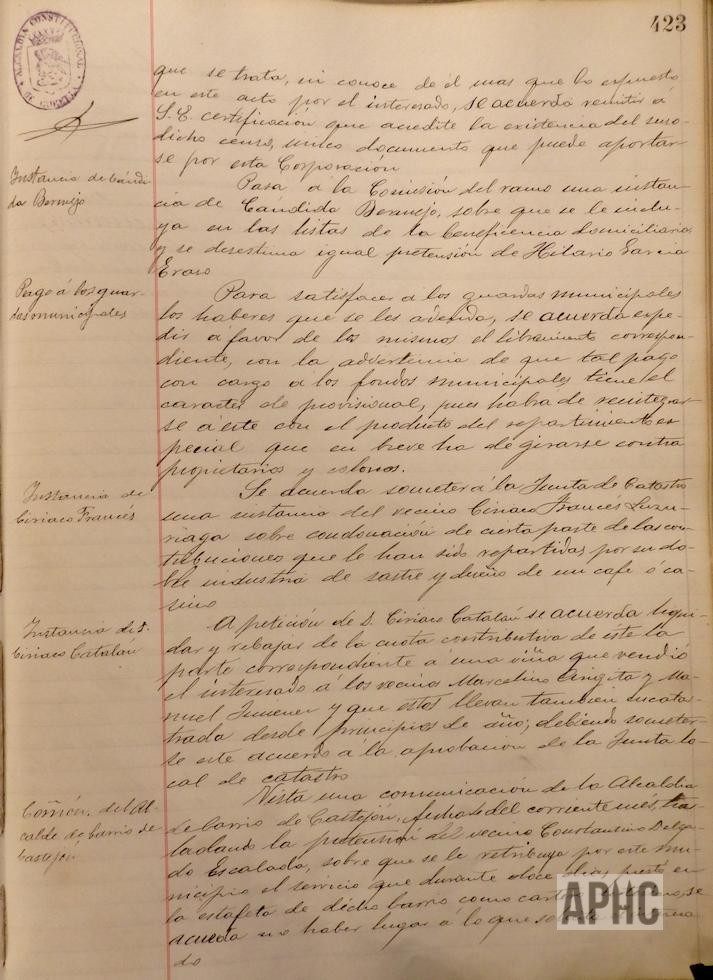 423
ALCALDIA CONSTITUCIONAL
que se trata, ni conoce de él mas que lo expuesto
en este acto por el interesado, se acuerda remitir á
S. E. certificación que acredite la existencia del suso-
dicho censo, unico documento que puede aportar-
se por esta Corporación
Instancia de Cándi-
da Bermejo
Pasa á la Comisión del ramo una instan-
cia de Cándida Bermejo, sobre que se le inclu-
ya en las listas de la beneficencia domiciliaria
y se desestima igual pretensión de Hilario Garcia
Eraso
Pago á los guar-
das municipales
Para satisfacer á los guardas municipales
los haberes que se les adeuda, se acuerda expe-
dir á favor de los mismos el libramiento correspon-
diente, con la advertencia de que tal pago
con cargo á los fondos municipales tiene el
caracter de provisional, pues habra de reintegrar-
se á este con el producto del repartimiento es
pecial que en breve ha de girarse contra
propietarios y colonos.
Instancia de
Ciriaco Francés
Se acuerda someter á la Junta de Catastro
una instancia del vecino Ciriaco Francés Luzu-
riaga sobre condonación de cierta parte de las con-
tribuciones que le han sido repartidas por su do-
ble industria de sastre y dueño de un café ó ca-
sino
Instancia de D.
Ciriaco Catalán
A petición de D. Ciriaco Catalán se acuerda liqui-
dar y rebajar de la cuota contributiva de éste la
parte correspondiente á una viña que vendió
el interesado á los vecinos Marcelino Angita y Ma-
nuel Jimenez y que estos llevan tambien encatas-
trada desde principios de año; debiendo someter-
se este acuerdo á la aprobación de la Junta lo-
cal de catastro
Comón. del Al-
calde de barrio de
Castejón
Vista una comunicación de la Alcaldia
de barrio de Castejón, fecha del corriente mes, tras-
ladando la pretensión del vecino Constantino Delga-
do Escalada, sobre que se le retribuya por este mu-
nicipio el servicio que durante doce dias prestó en
la estafeta de dicho barrio como cartero, se
acuerda no haber lugar á lo que
do
APHC